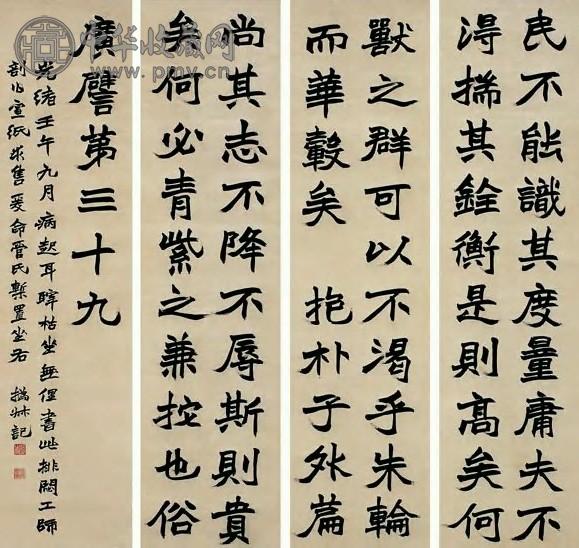 民不能識其度量庸夫不
淂揣其銓衡是則高矣何
獸之群可以不渴乎朱輪
而華轂矣 抱朴子外篇
尚其志不降不辱斯則貴
矣何必青紫之兼拕也俗
廣譬第三十九
光緒壬午九月病起耳枯坐無俚書此排悶工師
宣紙求售爰命管氏槧置坐右 撝叔記
中华收藏网
www.pmv.cn